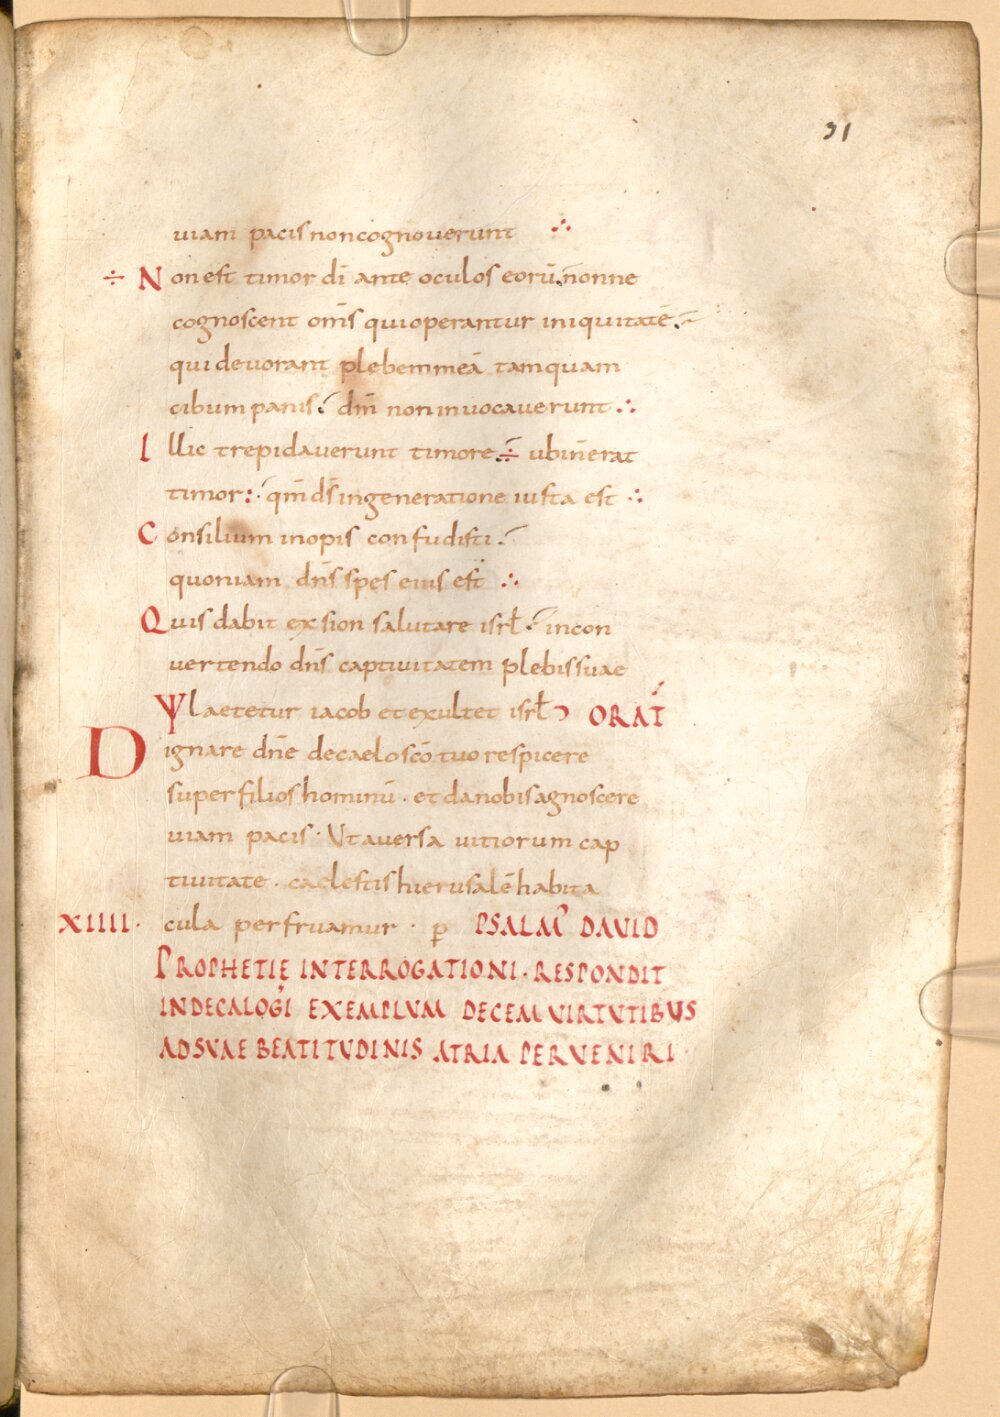 31
uiam pacis non cognouerunt ∴
÷ Non est timor dī ante oculos eorū. nonne
cognoscent om̄s qui operantur iniquitatē.
qui deuorant plebem meā tamquam
cibum panis. dn̄m non inuocauerunt ∴
Illic trepidauerunt timore ÷ ubi n̄ erat
timor: qm̄ ds̄ in generatione iusta est ∴
Consilium inopis confudisti.
quoniam dn̄s spes eius est ∴
Quis dabit ex sion salutare isrł. incon
uertendo dn̄s captiuitatem plebis suae
laetetur iacob et exultet isrł ORAT̄
Dignare dn̄e de caelo sc̄o tuo respicere
super filios hominū · et da nobis agnoscere
uiam pacis · Ut auersa uitiorum cap
tiuitate · caelestis hierusalē habita
XIIII · cula perfruamur · p̱ PSALM̄ DAVID
PROPHETIĘ INTERROGATIONI · RESPONDIT
IN DECALOGI EXEMPLVM DECEM VIRTVTIBVS
AD SVAE BEATITVDINIS ATRIA PERVENIRI ·